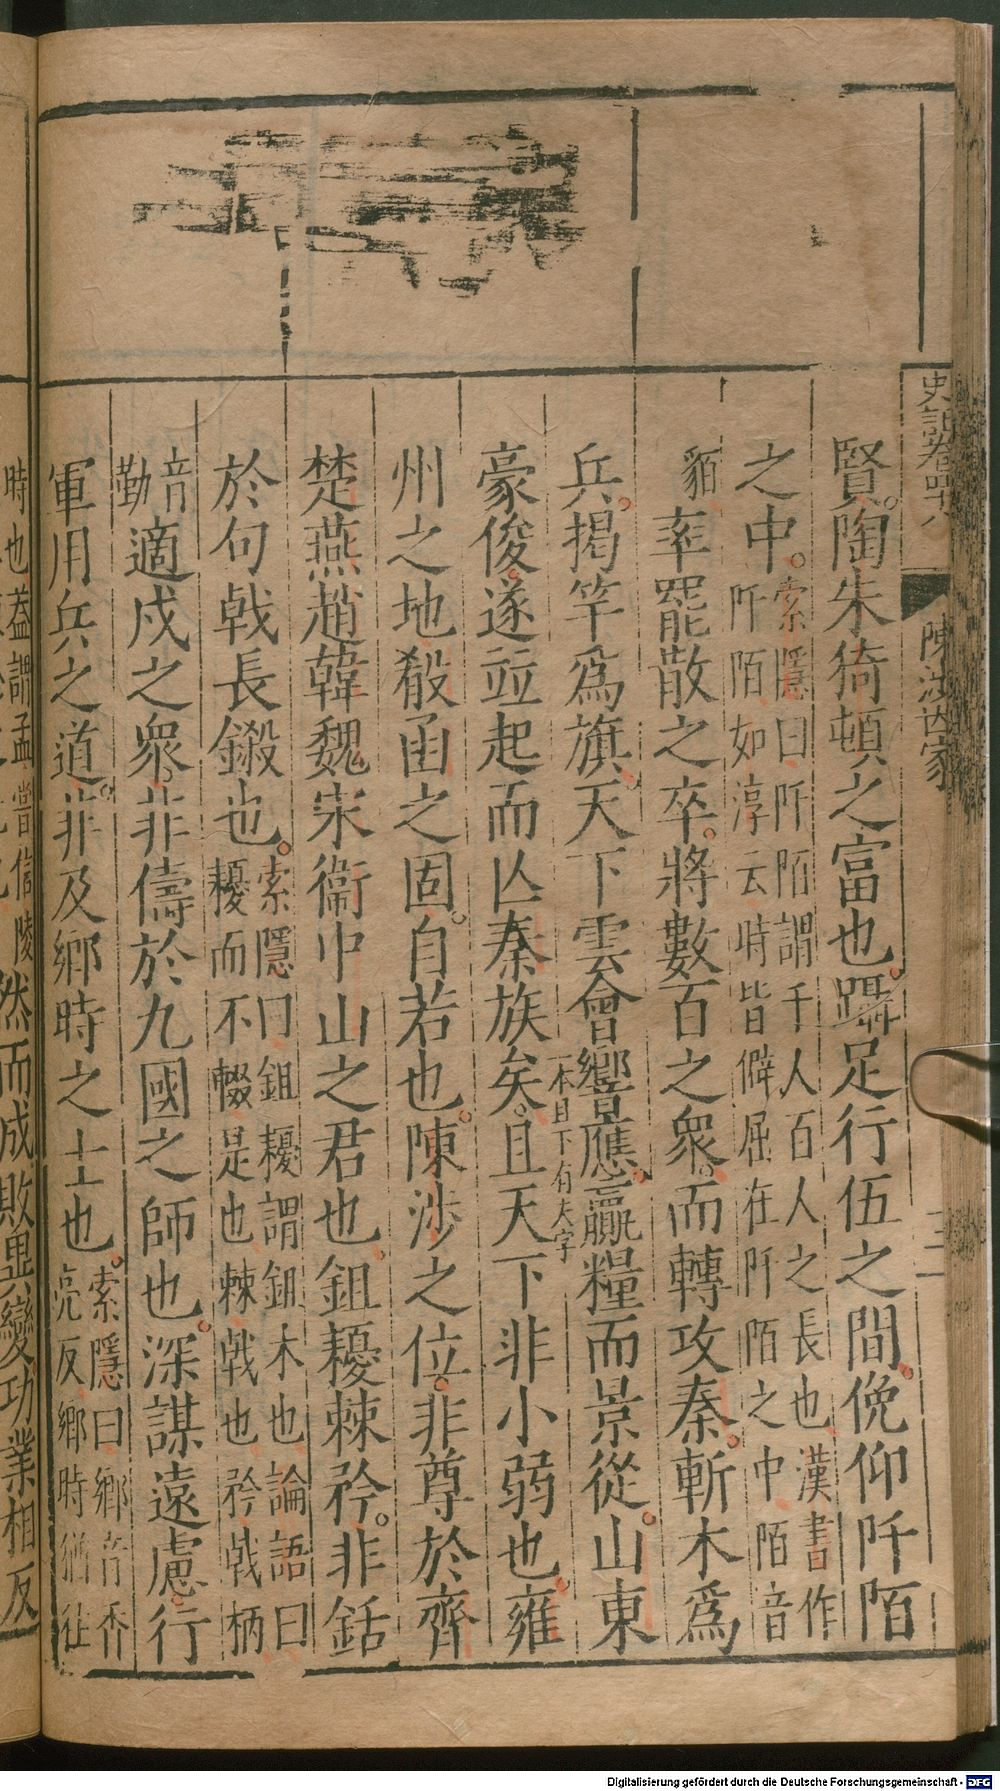 史記卷四十八
陳涉世家
二
賢。陶朱猗頓之富也。躡足行伍之間。俛仰阡陌
之中。索隱曰阡陌謂千人百人之長也漢書作阡陌如淳云時皆僻屈在阡陌之中陌音
貊率罷散之卒。將數百之衆。而轉攻秦。斬木爲
兵。揭竿爲旗。天下雲會響應。贏糧而景從。山東
豪俊。遂並起而亾秦族矣。一本且下有夫字且天下非小弱也。雍
州之地殽函之固。自若也。陳涉之位。非尊於齊
楚燕趙韓魏宋衛中山之君也。鉏耰棘矜。非銛
於句戟長鎩也。索隱曰鉏耰謂鉏木也論語曰耰而不輟是也棘戟也矜戟柄
音勤適戍之衆。非儔於九國之師也。深謀遠慮。行
軍用兵之道。非及鄉時之士也。索隱曰鄉音香亮反鄉時猶往
時也蓋謂孟嘗信陵
然而成敗異變功業相反
Digitalisierung gefördert durch die Deutsche Forschungsgemeinschaft - DFG